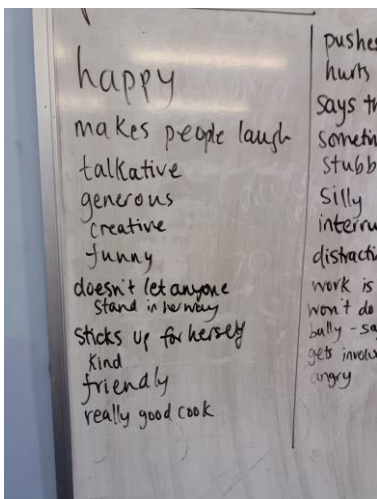 happy
makes people laugh
talkative
generous
creative
funny
doesn't let anyone
stand in her way
sticks up for herself
kind
friendly
really good cook
pushes
hurts
says
stubb
silly
interru
distracti
work is
won't do
bully - sa
gets involv
angry